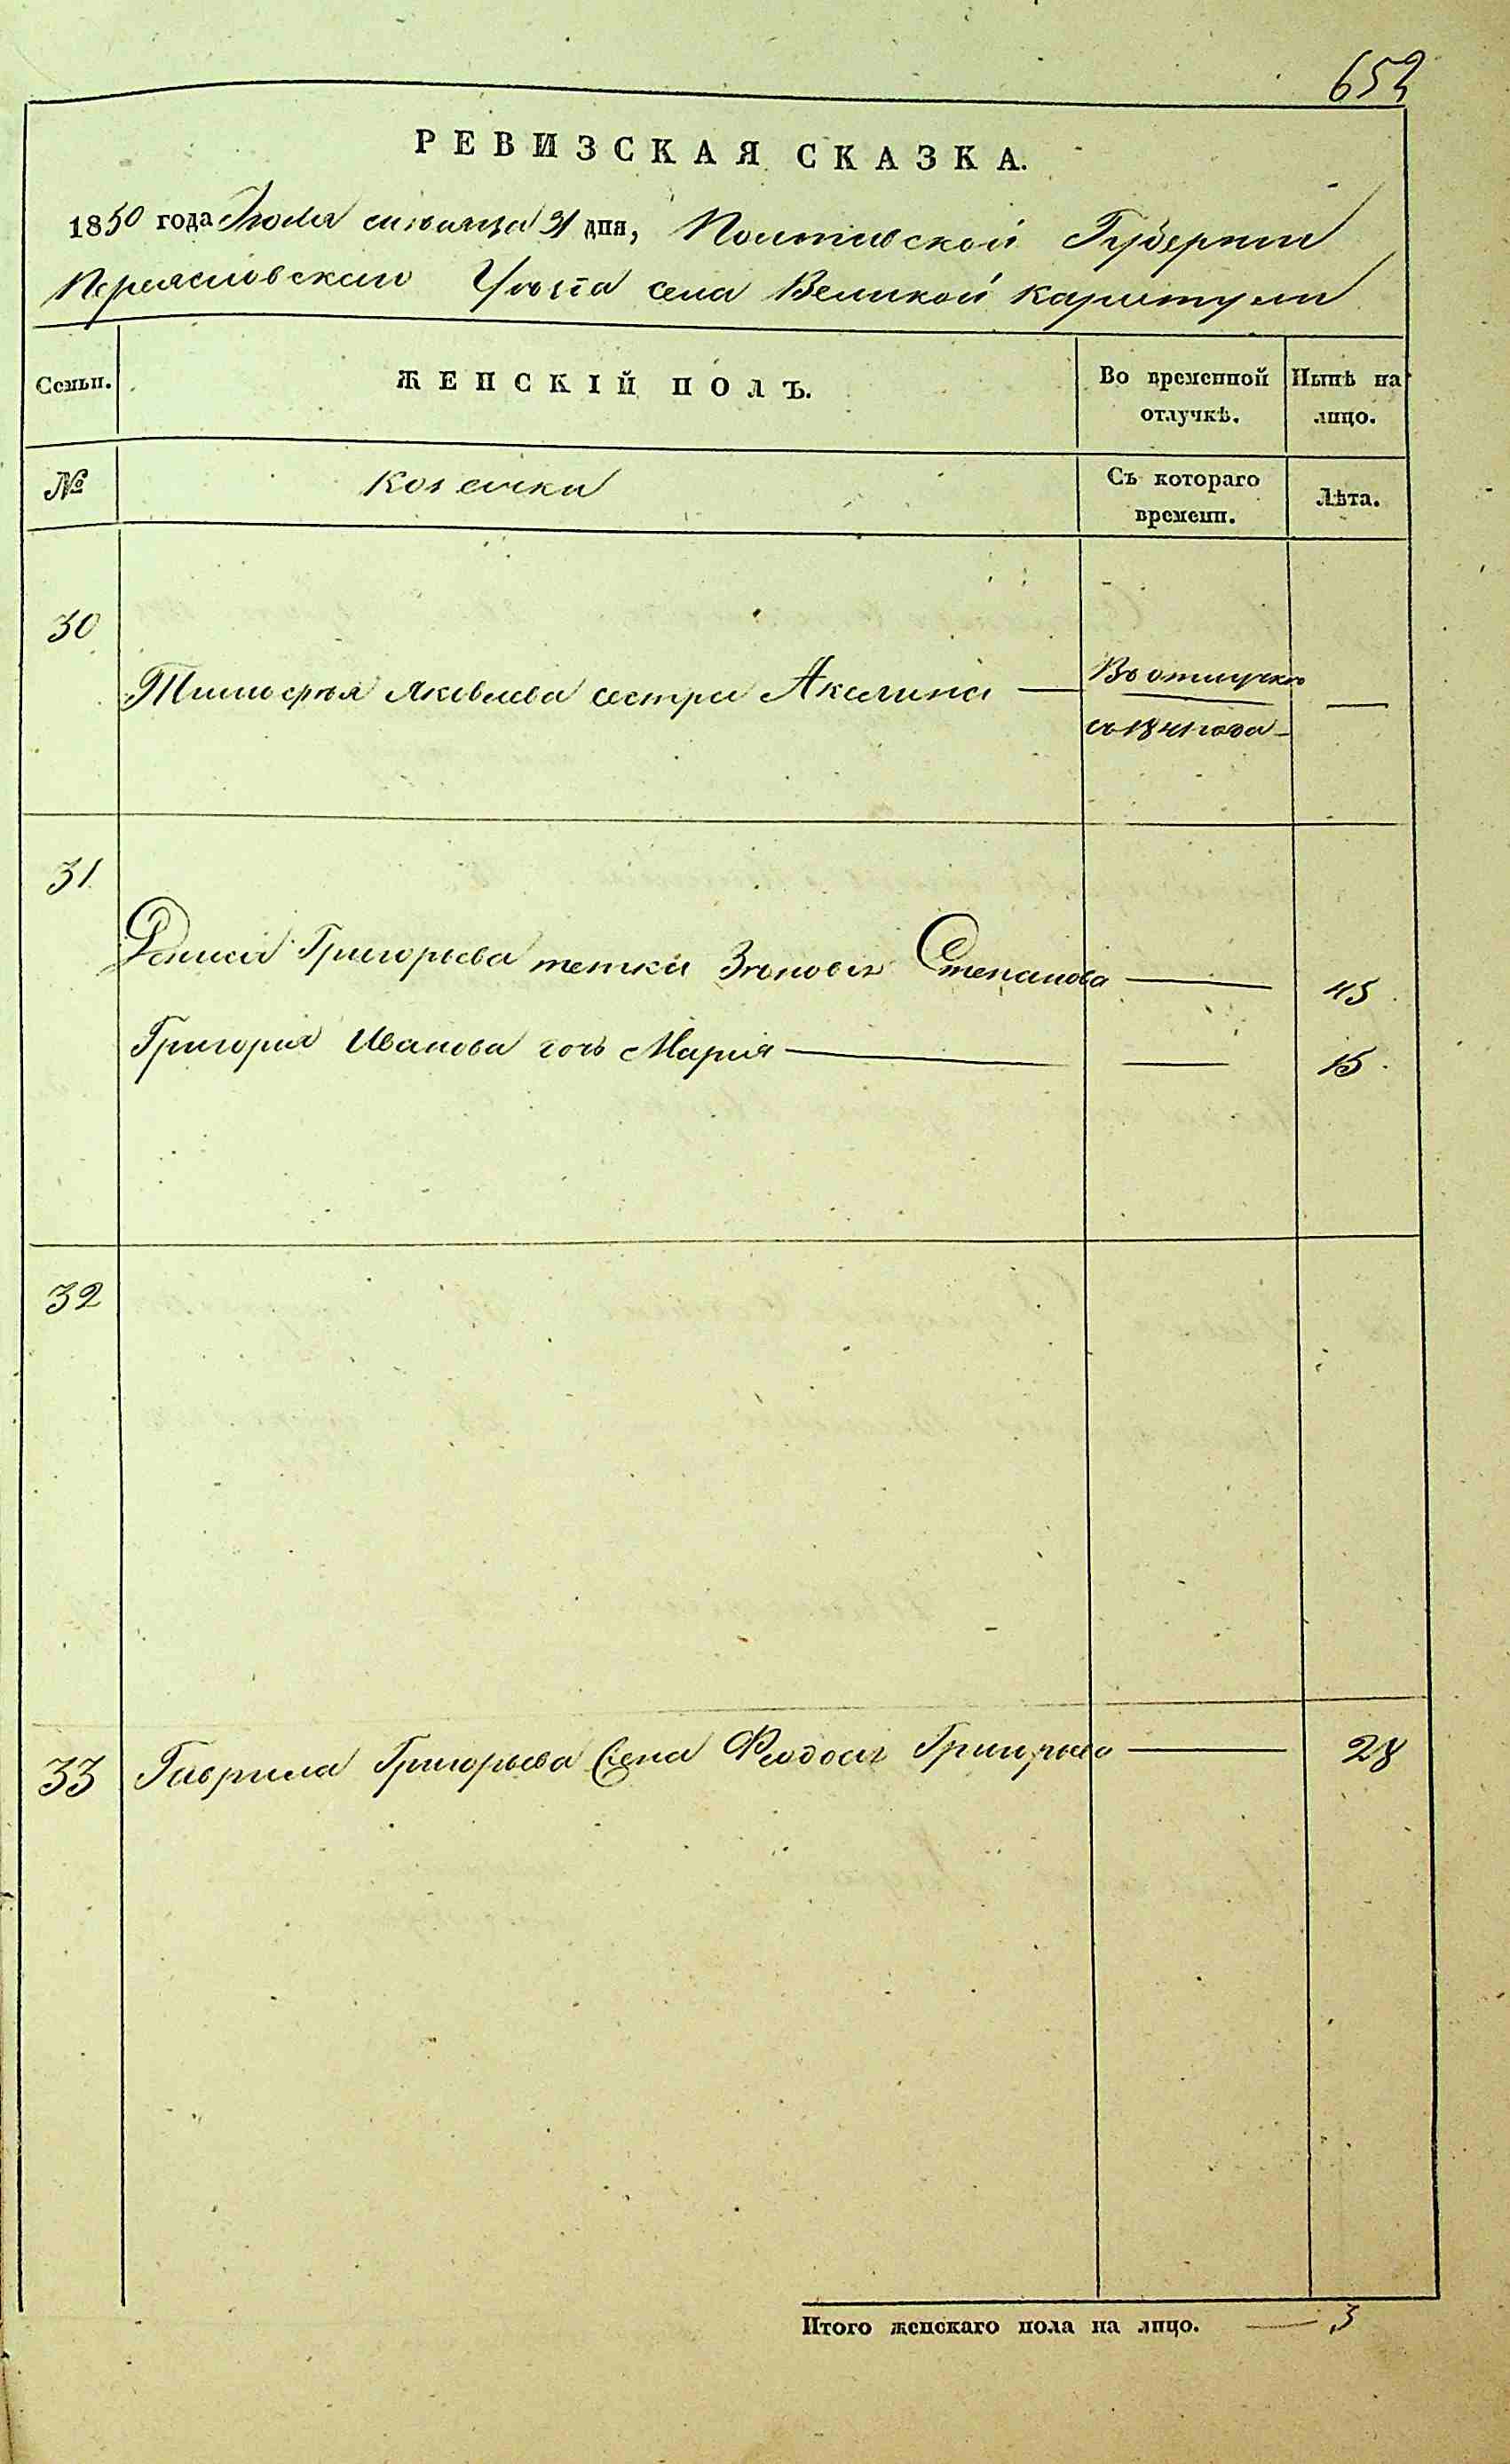 652
РЕВИЗСКАЯ СКАЗКА.
1850 года Июля месяца 31 дня, Полтавской Губернии
Переясловскаго Уезда села Великой Каратули
Семьи. ЖЕНСКІЙ ПОЛЪ. Во временной отлучкѣ. Нынѣ на лицо.
№ Козачки Съ котораго времени. Лѣта.
30
Тимофея Яковлева сестра Акилина — Въ отлучке —
съ 1841 года
31
Дениса Григорьева тетка Зеновья Степанова — 45
Григорія Иванова дочь Марія — — 15
32
33 Гаврила Григорьева жена Феодосья Григорьева — 28
Итого женскаго пола на лицо. — 3